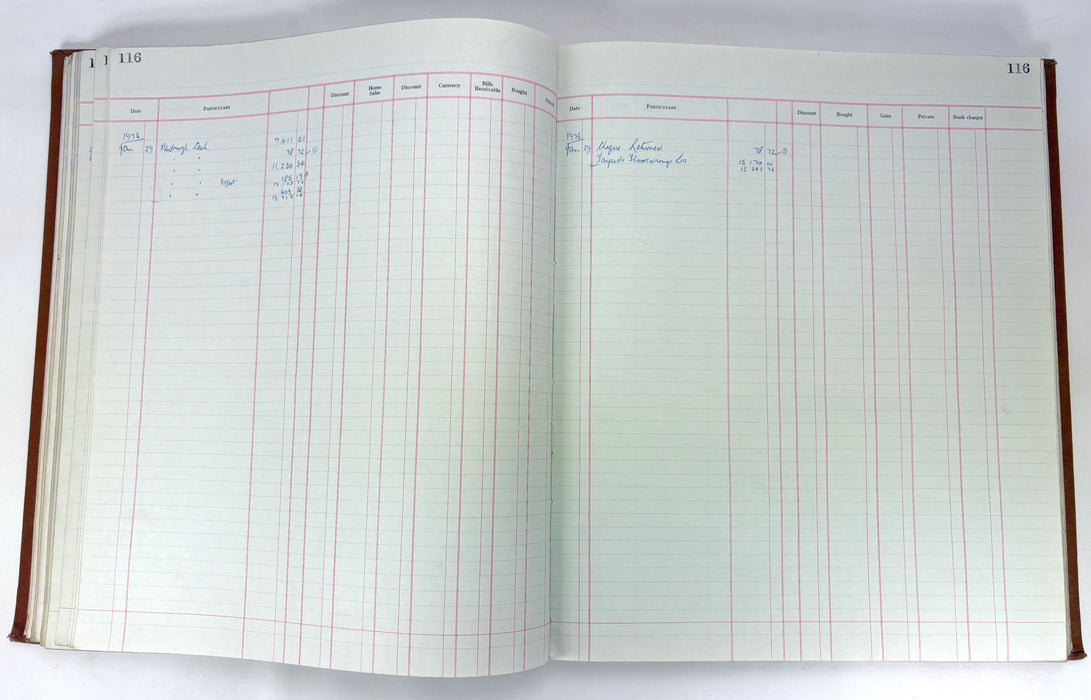 1
1
116
Date Particulars Discount Home Sales Discount Currency Bills Receivable Bought
1973
Jan 29 Newburgh Cash 7,611 51
" " 78 72
" " 11,230 34
" " Export 185 19
" "
116
Date Particulars Discount Bought Sales Private Bank charges
1973
Jan 29 Cheque Returned 78 72
Tayside Floorcoverings Ltd 15 170 00